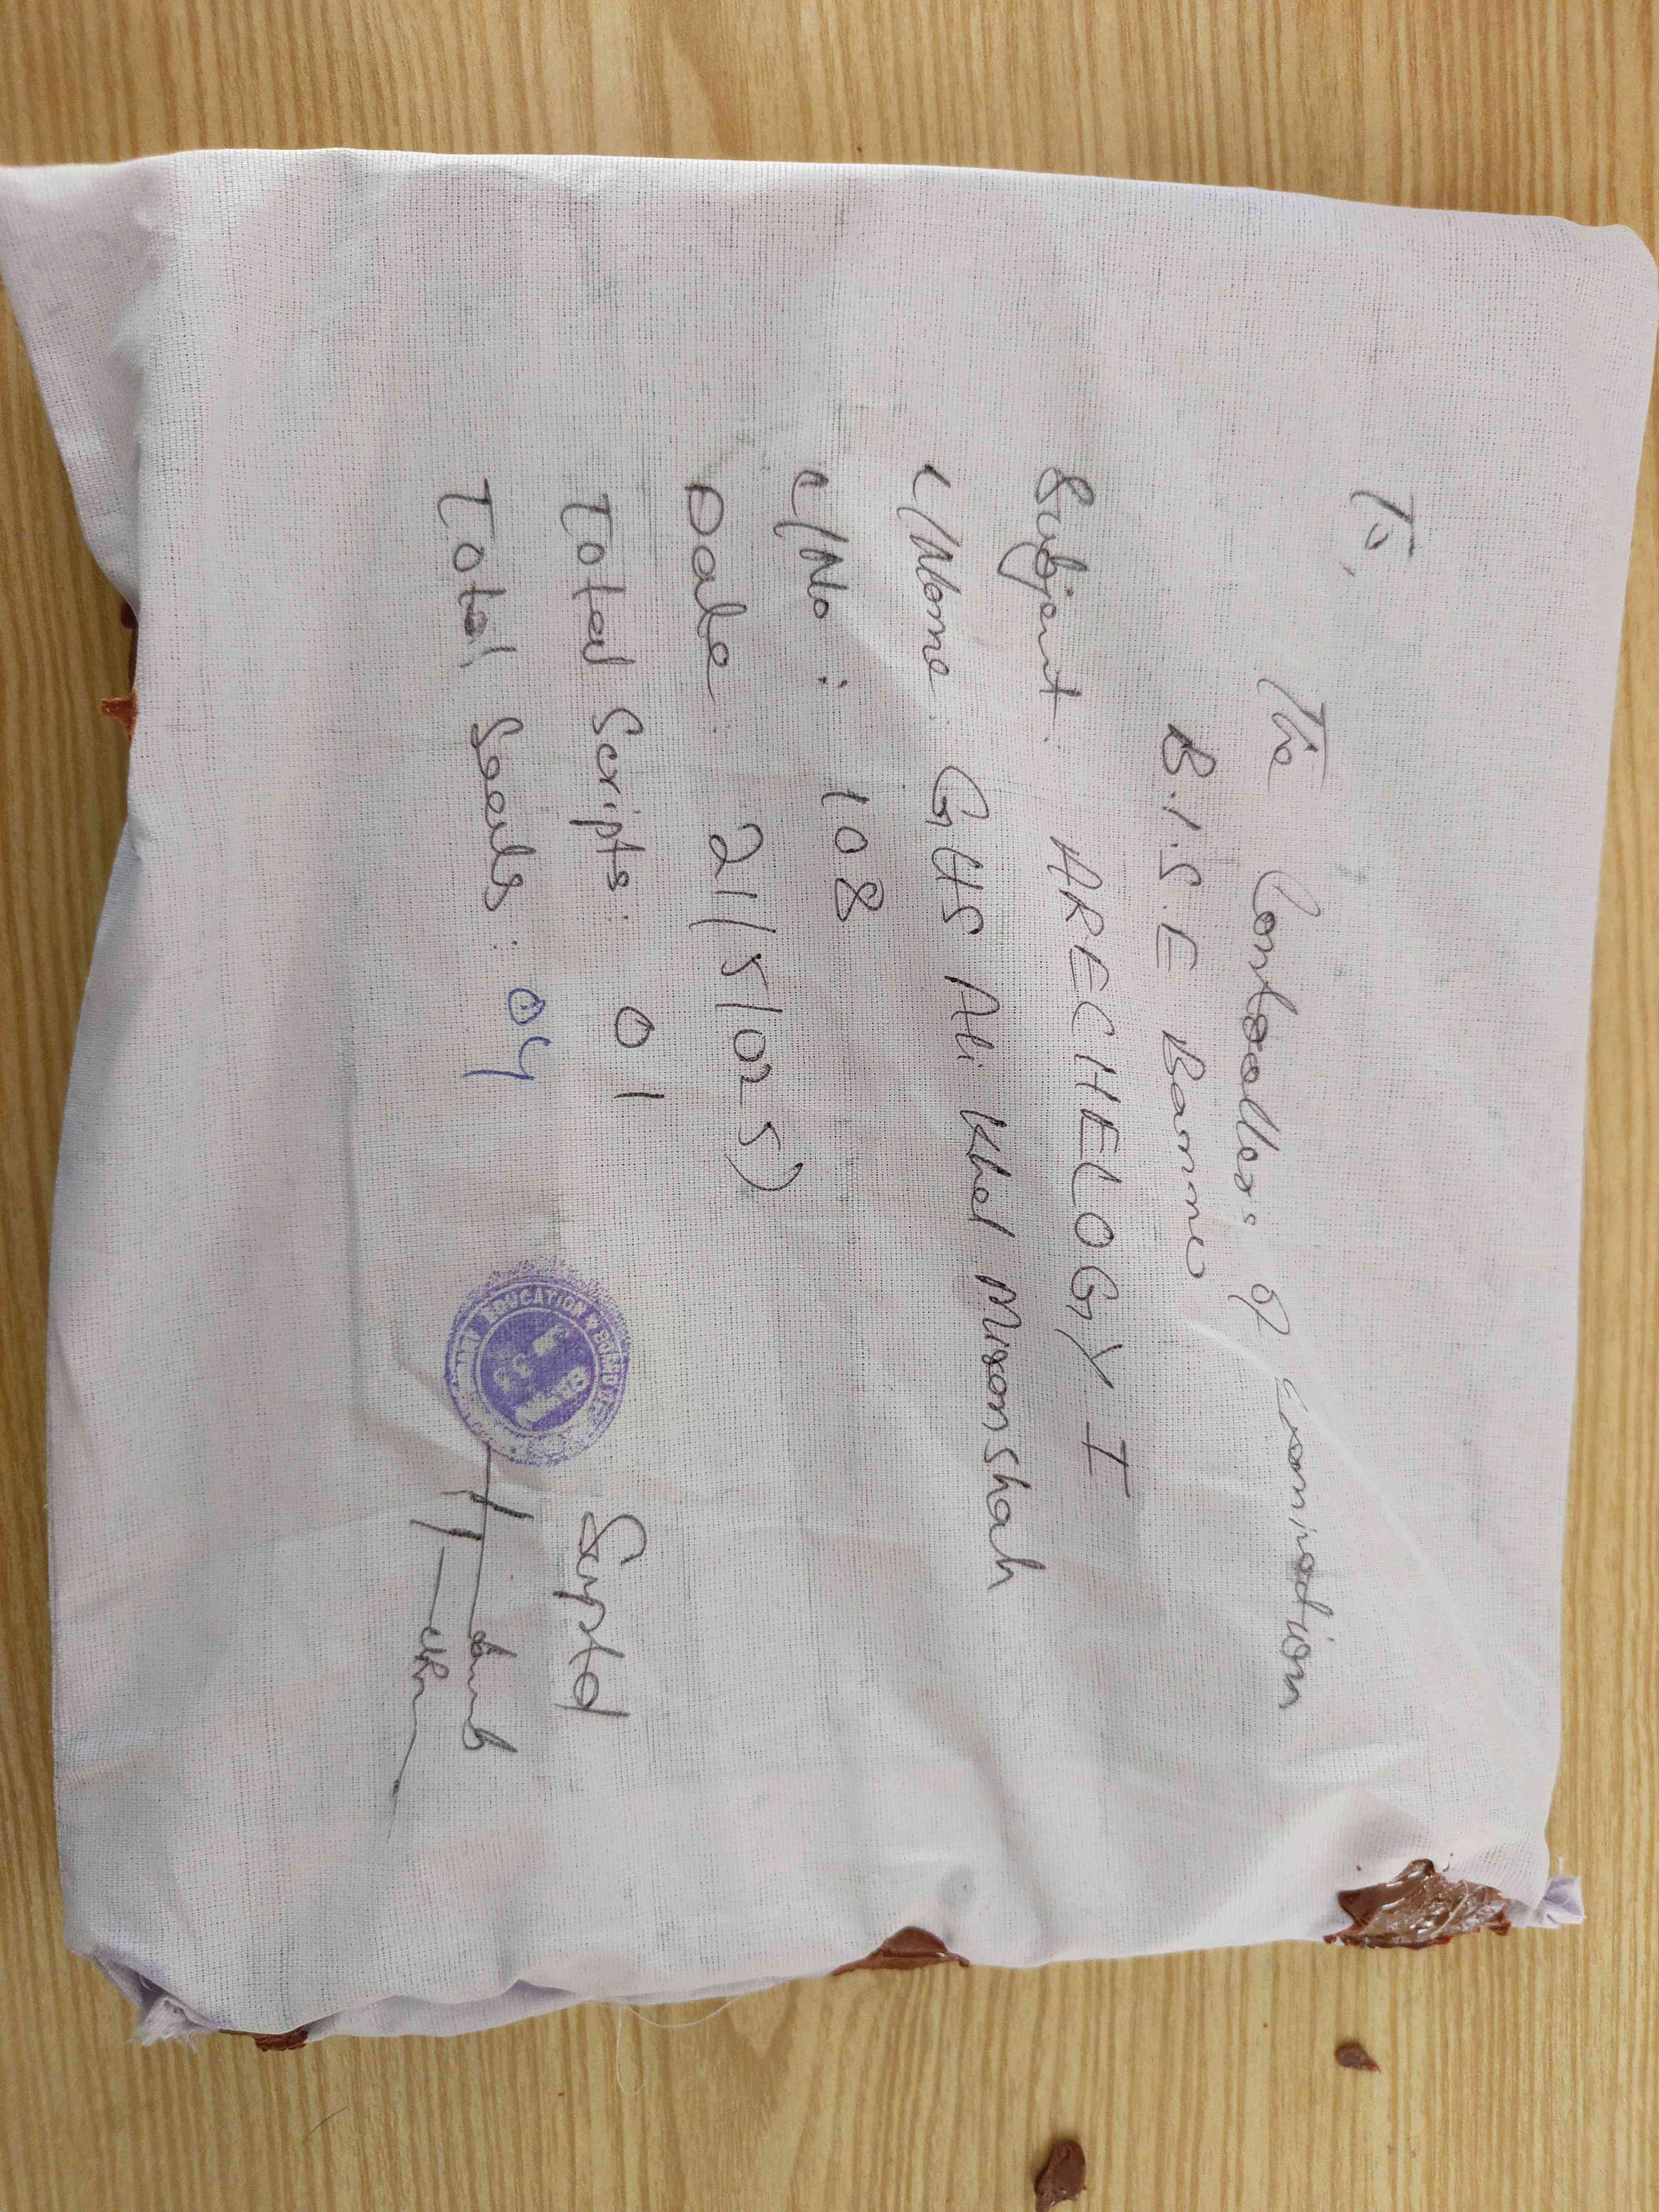 To,
The Controller of Examination
B.I.S.E Bannu
Subject: ARECHELOGY I
C/Name: GHS Ali Khel Miramshah
C/No: 108
Date: 21/5/025)
Total Scripts: 01
Total Seals: 04
Suptd
EDUCATION